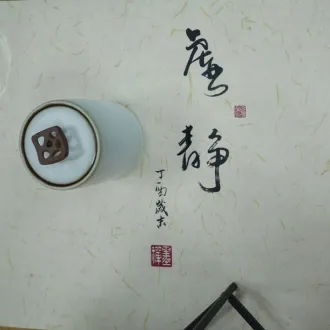 虚静
丁酉歲末